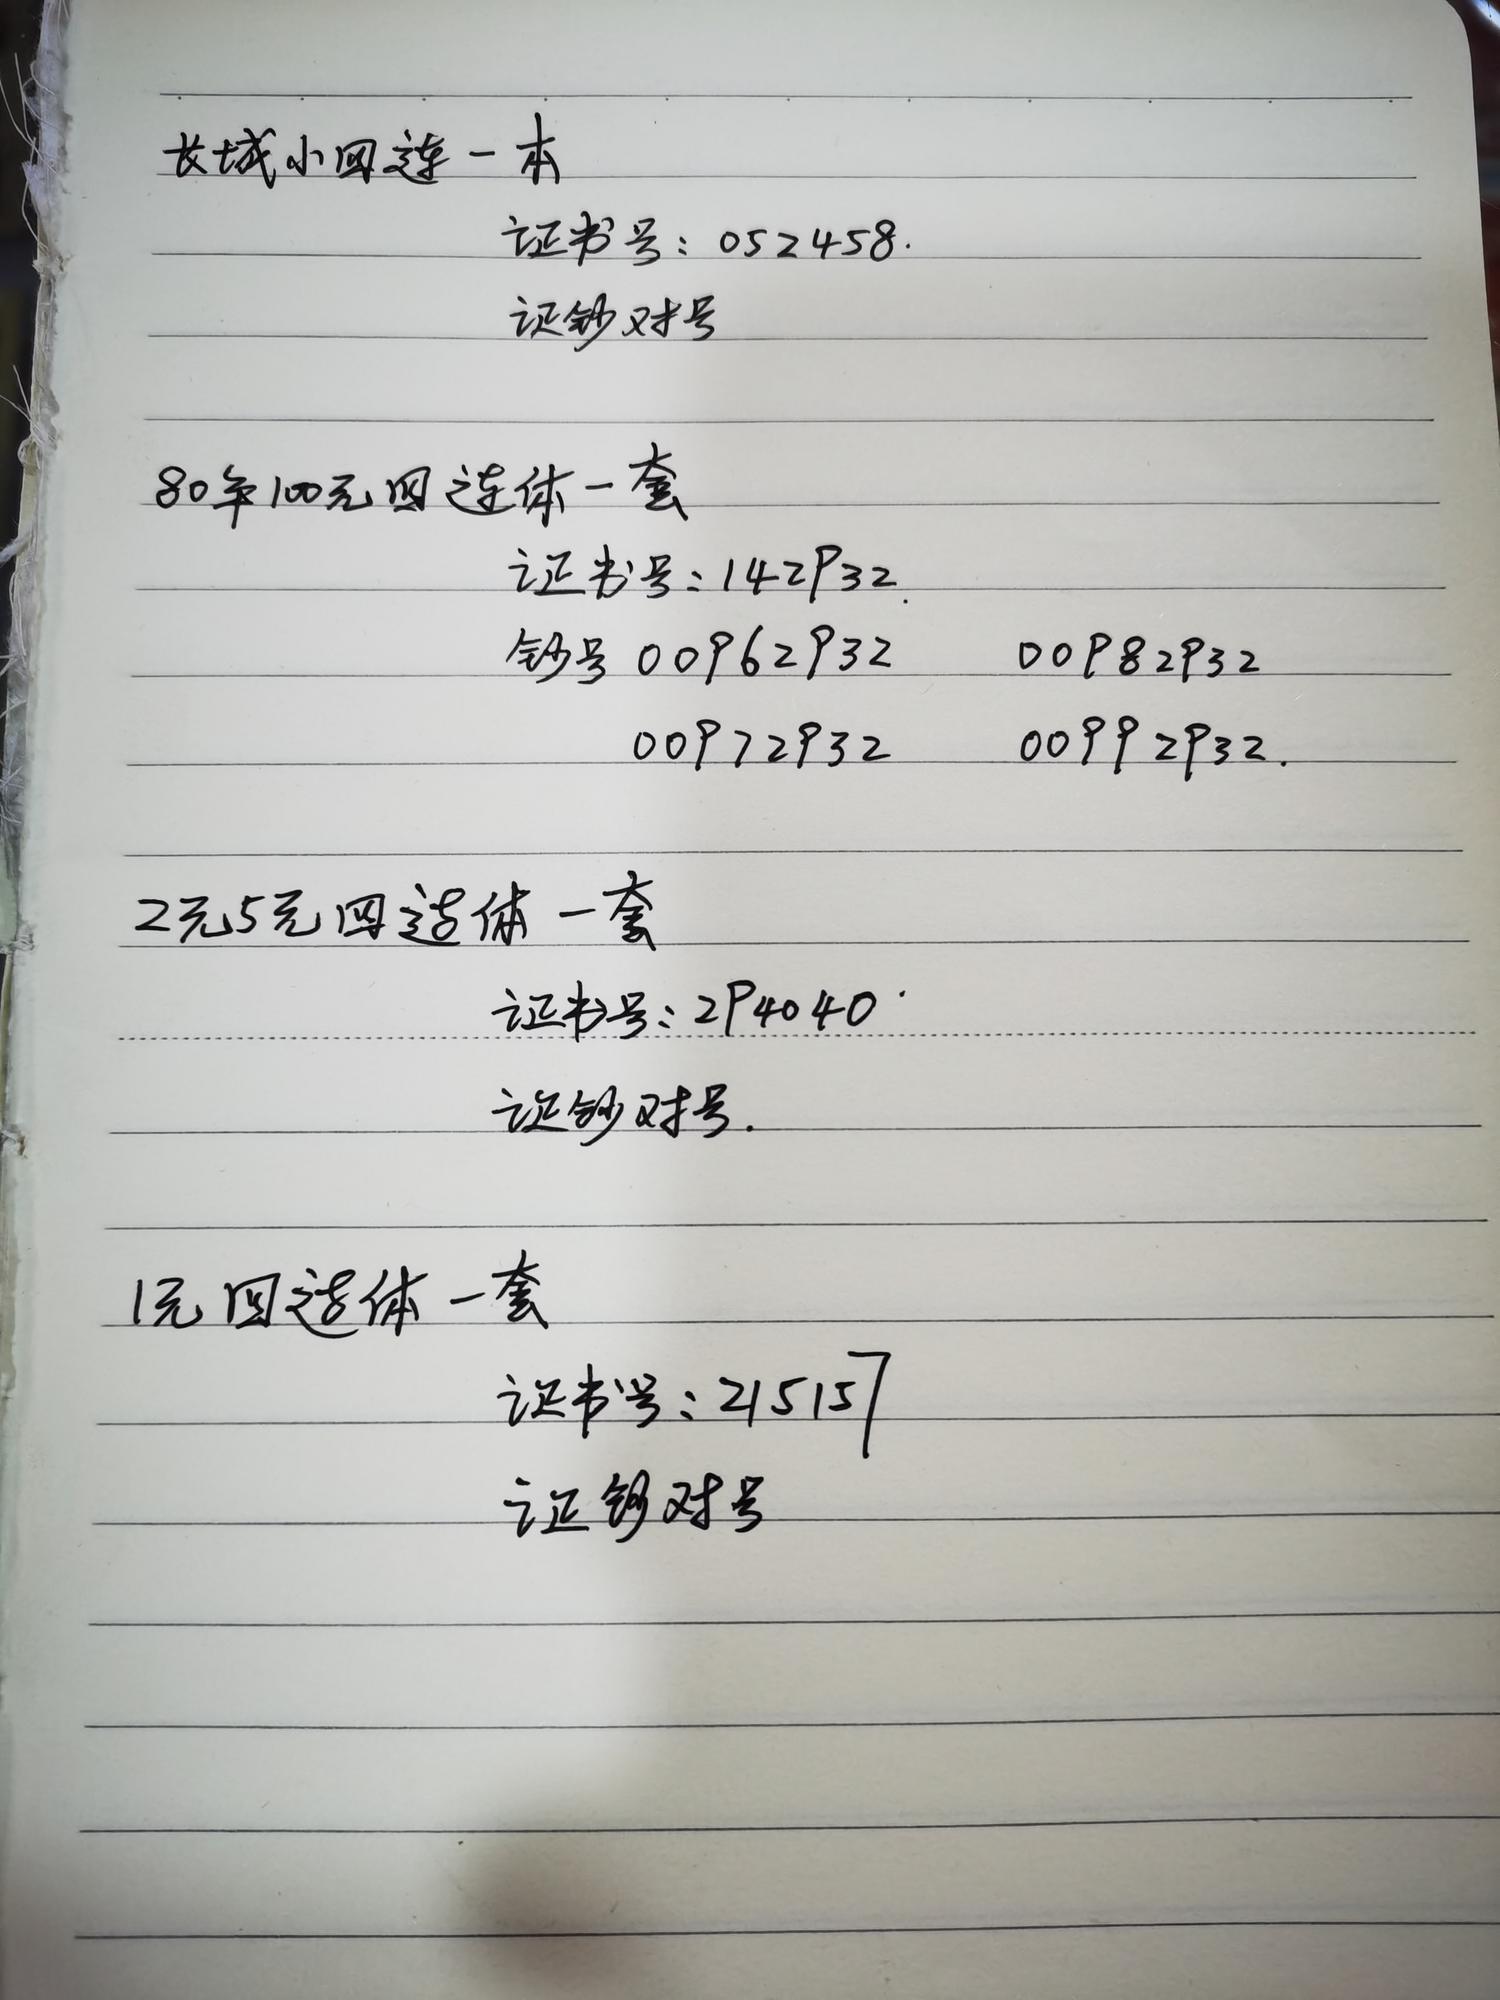 长城小四连一本
证书号：052458.
证钞对号
80年100元四连体一套
证书号：142932.
钞号 00962932 00982932
00972932 00992932.
2元5元四连体一套
证书号：294040.
证钞对号.
1元四连体一套
证书号：215157
证钞对号